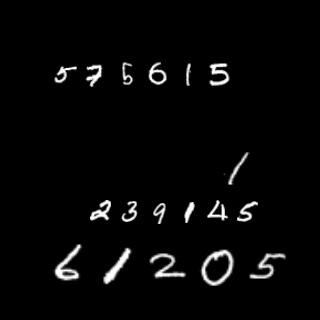 575615
1
239145
61205